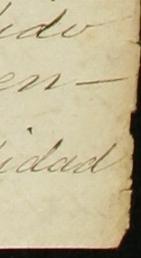 dido
en—
idad